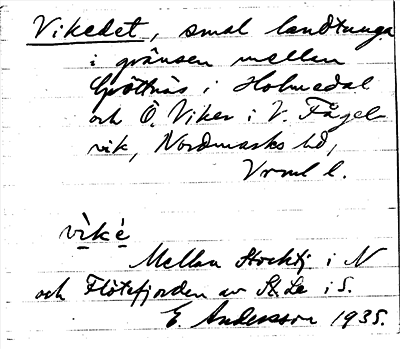 Vikedet, smal landtunga
i gränsen mellan
Gröttnäs i Holmedal
och Ö. Viker i V. Fågel-
vik, Nordmarks hd,
Vrml l.
vìkè
Mellan Stocktj i N
och Flötefjorden av St. Le i S.
E. Andersson 1935.